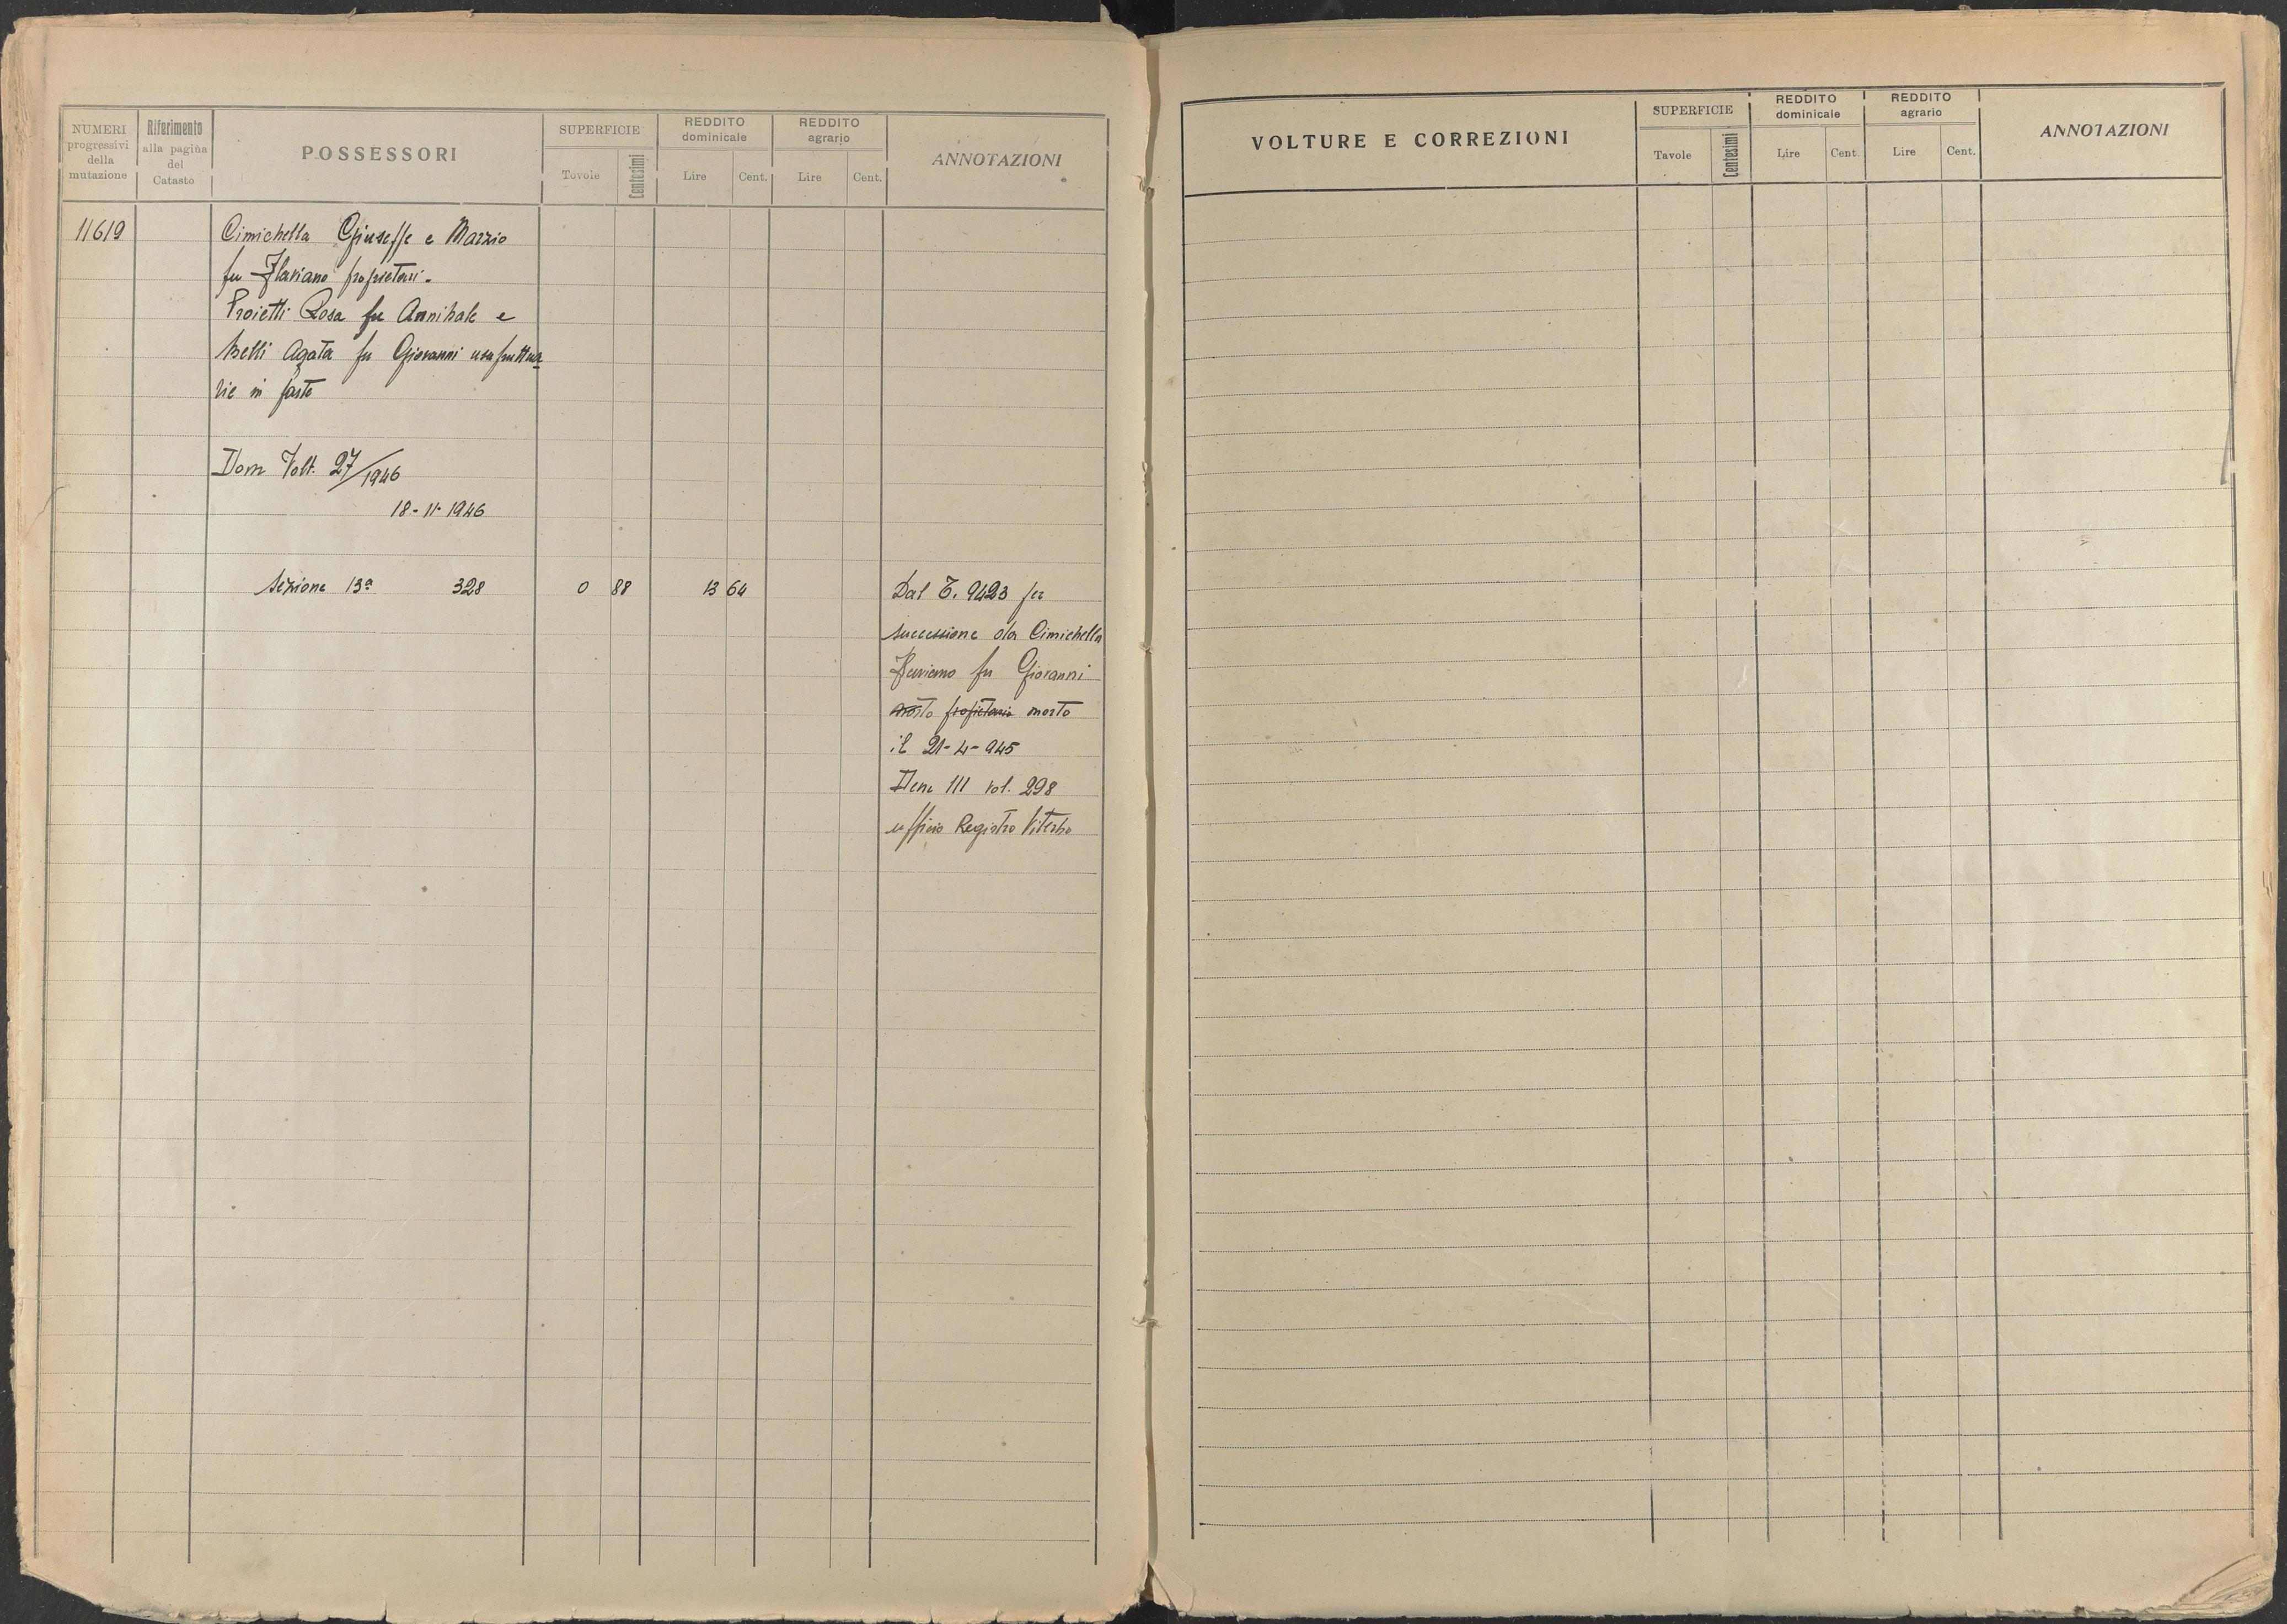 NUMERI progressivi della mutazione
Riferimento alla pagina del Catasto
POSSESSORI
SUPERFICIE
Tavole
Centesimi
REDDITO dominicale
Lire
Cent.
REDDITO agrario
Lire
Cent.
ANNOTAZIONI
11619
Cimichella Giuseppe e Marzio
fu Flaviano proprietari.
Proietti Rosa fu Annibale e
Belli Agata fu Giovanni usufruttua
rie in parte
Dom Volt. 27/1946
18-11-1946
Sezione 13ª 328 0 88 13 64
Dal T. 9423 per
successione da Cimichella
Flaviano fu Giovanni
morto
il 21-4-945
Den 111 vol. 298
ufficio Registro Viterbo
VOLTURE E CORREZIONI
SUPERFICIE
Tavole
Centesimi
REDDITO dominicale
Lire
Cent.
REDDITO agrario
Lire
Cent.
ANNOTAZIONI